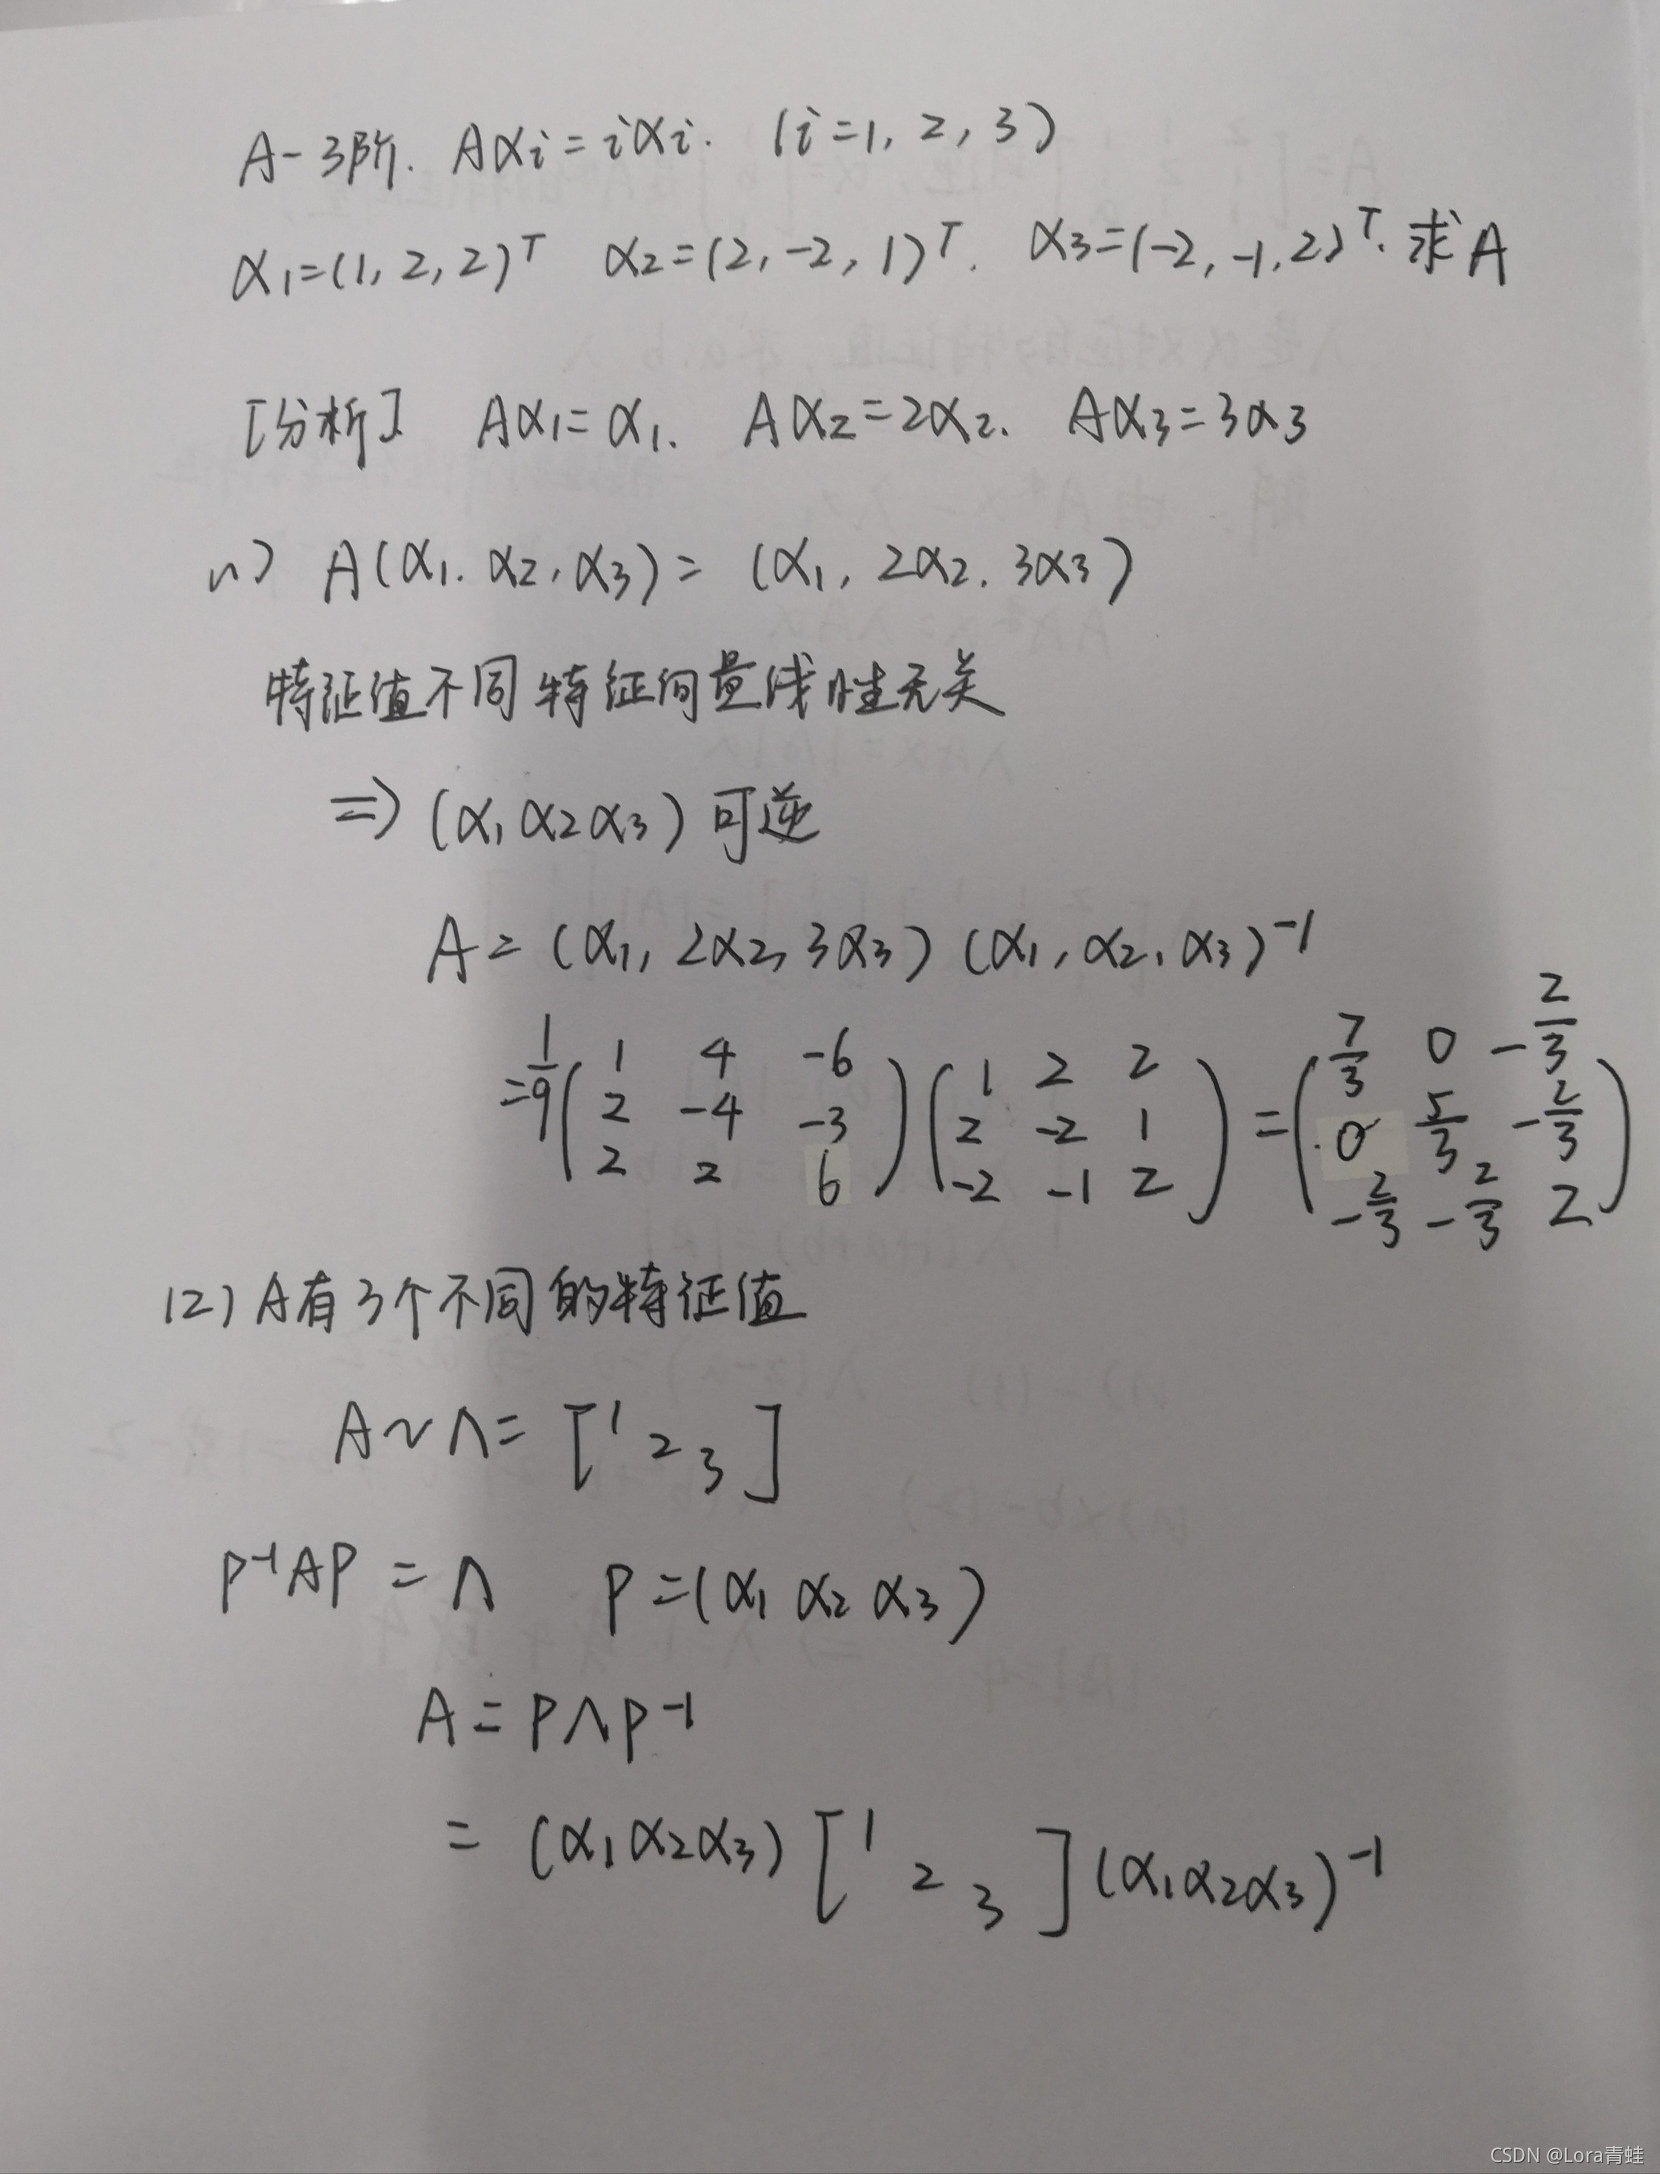 A-3阶. Aαi=iαi. (i=1, 2, 3)
α1=(1, 2, 2)ᵀ α2=(2, -2, 1)ᵀ. α3=(-2, -1, 2)ᵀ. 求A
[分析] Aα1=α1. Aα2=2α2. Aα3=3α3
(1) A(α1. α2, α3)= (α1, 2α2. 3α3)
特征值不同 特征向量线性无关
=> (α1 α2 α3) 可逆
A= (α1, 2α2, 3α3) (α1, α2, α3)⁻¹
= 1/9 ( 1 4 -6 ) ( 1 2 2 ) = ( 7/3 0 -2/3 )
( 2 -4 -3 ) ( 2 -2 1 ) ( 0 5/3 -2/3 )
( 2 2 6 ) ( -2 -1 2 ) ( -2/3 -2/3 2 )
(2) A有3个不同的特征值
A~Λ= [1 2 3]
P⁻¹AP = Λ P=(α1 α2 α3)
A=PΛP⁻¹
= (α1α2α3) [1 2 3] (α1α2α3)⁻¹
CSDN @Lora青蛙